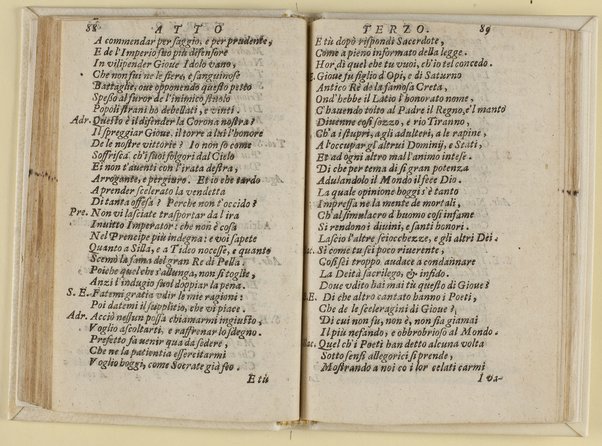 88 ATTO
A commendar per saggio, e per prudente,
E de l'Imperio suo più difensore
In vilipender Gioue Idolo vano,
Che non fui ne le fiere, e sanguinose
Battaglie, oue opponendo questo petto
Spesso al furor de l'inimico stuolo
Popoli strani hò debellati, e vinti.
Adr. Questo è il difender la Corona nostra?
Il spreggiar Gioue. il torre a lui l'honore
De le nostre vittorie? Io non sò come
Soffrisca. ch'i suoi folgori dal Cielo
Ei non t'auenti con l'irata destra,
Arrogante, e pergiuro. Et io che tardo
A prender scelerato la vendetta
Di tanta offesa? Perche non t'occido?
Pre. Non vi lasciate trasportar da l'ira
Inuitto Imperator: che non è cosa
Nel Prencipe più indegna: e voi sapete
Quanto a Silla, e a Tideo nocesse, e quanto
Scemò la fama del gran Re di Pella.
Poiche quel che s'allunga, non si toglie,
Anzi l'indugio suol doppiar la pena.
S. E. Fatemi gratia vdir le mie ragioni:
Poi datemi il supplitio, che vi piace.
Adr. Acciò nessun possa chiamarmi ingiusto,
Voglio ascoltarti, e raffrenar lo sdegno.
Prefetto fà uenir quà da sedere,
Che ne la patientia essercitarmi
Voglio hoggi, come Socrate già feo.
E tù
TERZO. 89
E tù dopò rispondi Sacerdote,
Come a pieno informato della legge.
Hor dì quel che tu vuoi, ch'io tel concedo.
Gioue fu figlio d'Opi, e di Saturno
Antico Rè de la famosa Creta,
Ond'hebbe il Latio l'honorato nome,
C'hauendo tolto al Padre il Regno, e'l manto
Diuenne così sozzo, e rio Tiranno,
Ch'a i stupri, a gli adulteri, a le rapine,
A l'occupar gl'altrui Dominij, e Stati,
Et ad ogni altro mal l'animo intese.
Di che per tema di sì gran potenza
Adulandolo il Mondo il fece Dio.
La quale opinione hoggi s'è tanto
Impressa ne la mente de mortali,
Ch'al simulacro d'huomo così infame
Si rendono i diuini, e santi honori.
Lascio l'altre sciocchezze, e gli altri Dei.
Sì come tu sei poco riuerente,
Così sei troppo audace a condannare
La Deità sacrilego, & infido.
Doue vdito hai mai tù questo di Gioue?
E. Di che altro cantato hanno i Poeti,
Che de le sceleragini di Gioue?
Di cui non fù, non è, non fia giamai
Il più nefando, e obbrobrioso al Mondo.
Quel ch'i Poeti han detto alcuna volta
Sotto sensi allegorici si prende,
Mostrando a noi co i lor celati carmi
I va-